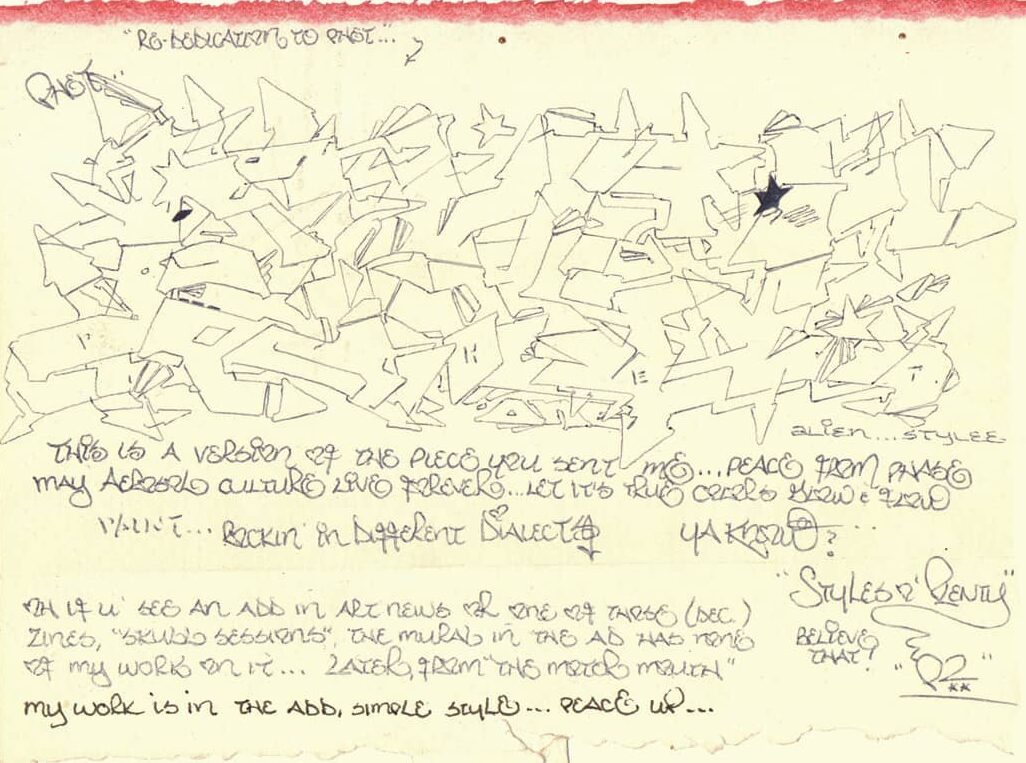 "RE-DEDICATION TO PHET...
PHET"
ALIEN...STYLEE
THIS IS A VERSION OF THE PIECE YOU SENT ME...PEACE FROM PHASE
MAY AEROSOL CULTURE LIVE FOREVER...LET IT'S TRUE COLORS GLOW & FLOW
ROCKIN' IN DIFFERENT DIALECTS YA KNOW?...
"STYLES N' PLENTY"
BELIEVE THAT!
"P2"
OH IF U' SEE AN ADD IN ART NEWS OR ONE OF THOSE (DEC.)
ZINES, "SKULL SESSIONS", THE MURAL IN THE AD HAS NONE
OF MY WORK ON IT... LATER, FROM "THE MOTOR MOUTH"
MY WORK IS IN THE ADD, SIMPLE STYLE... PEACE UP...